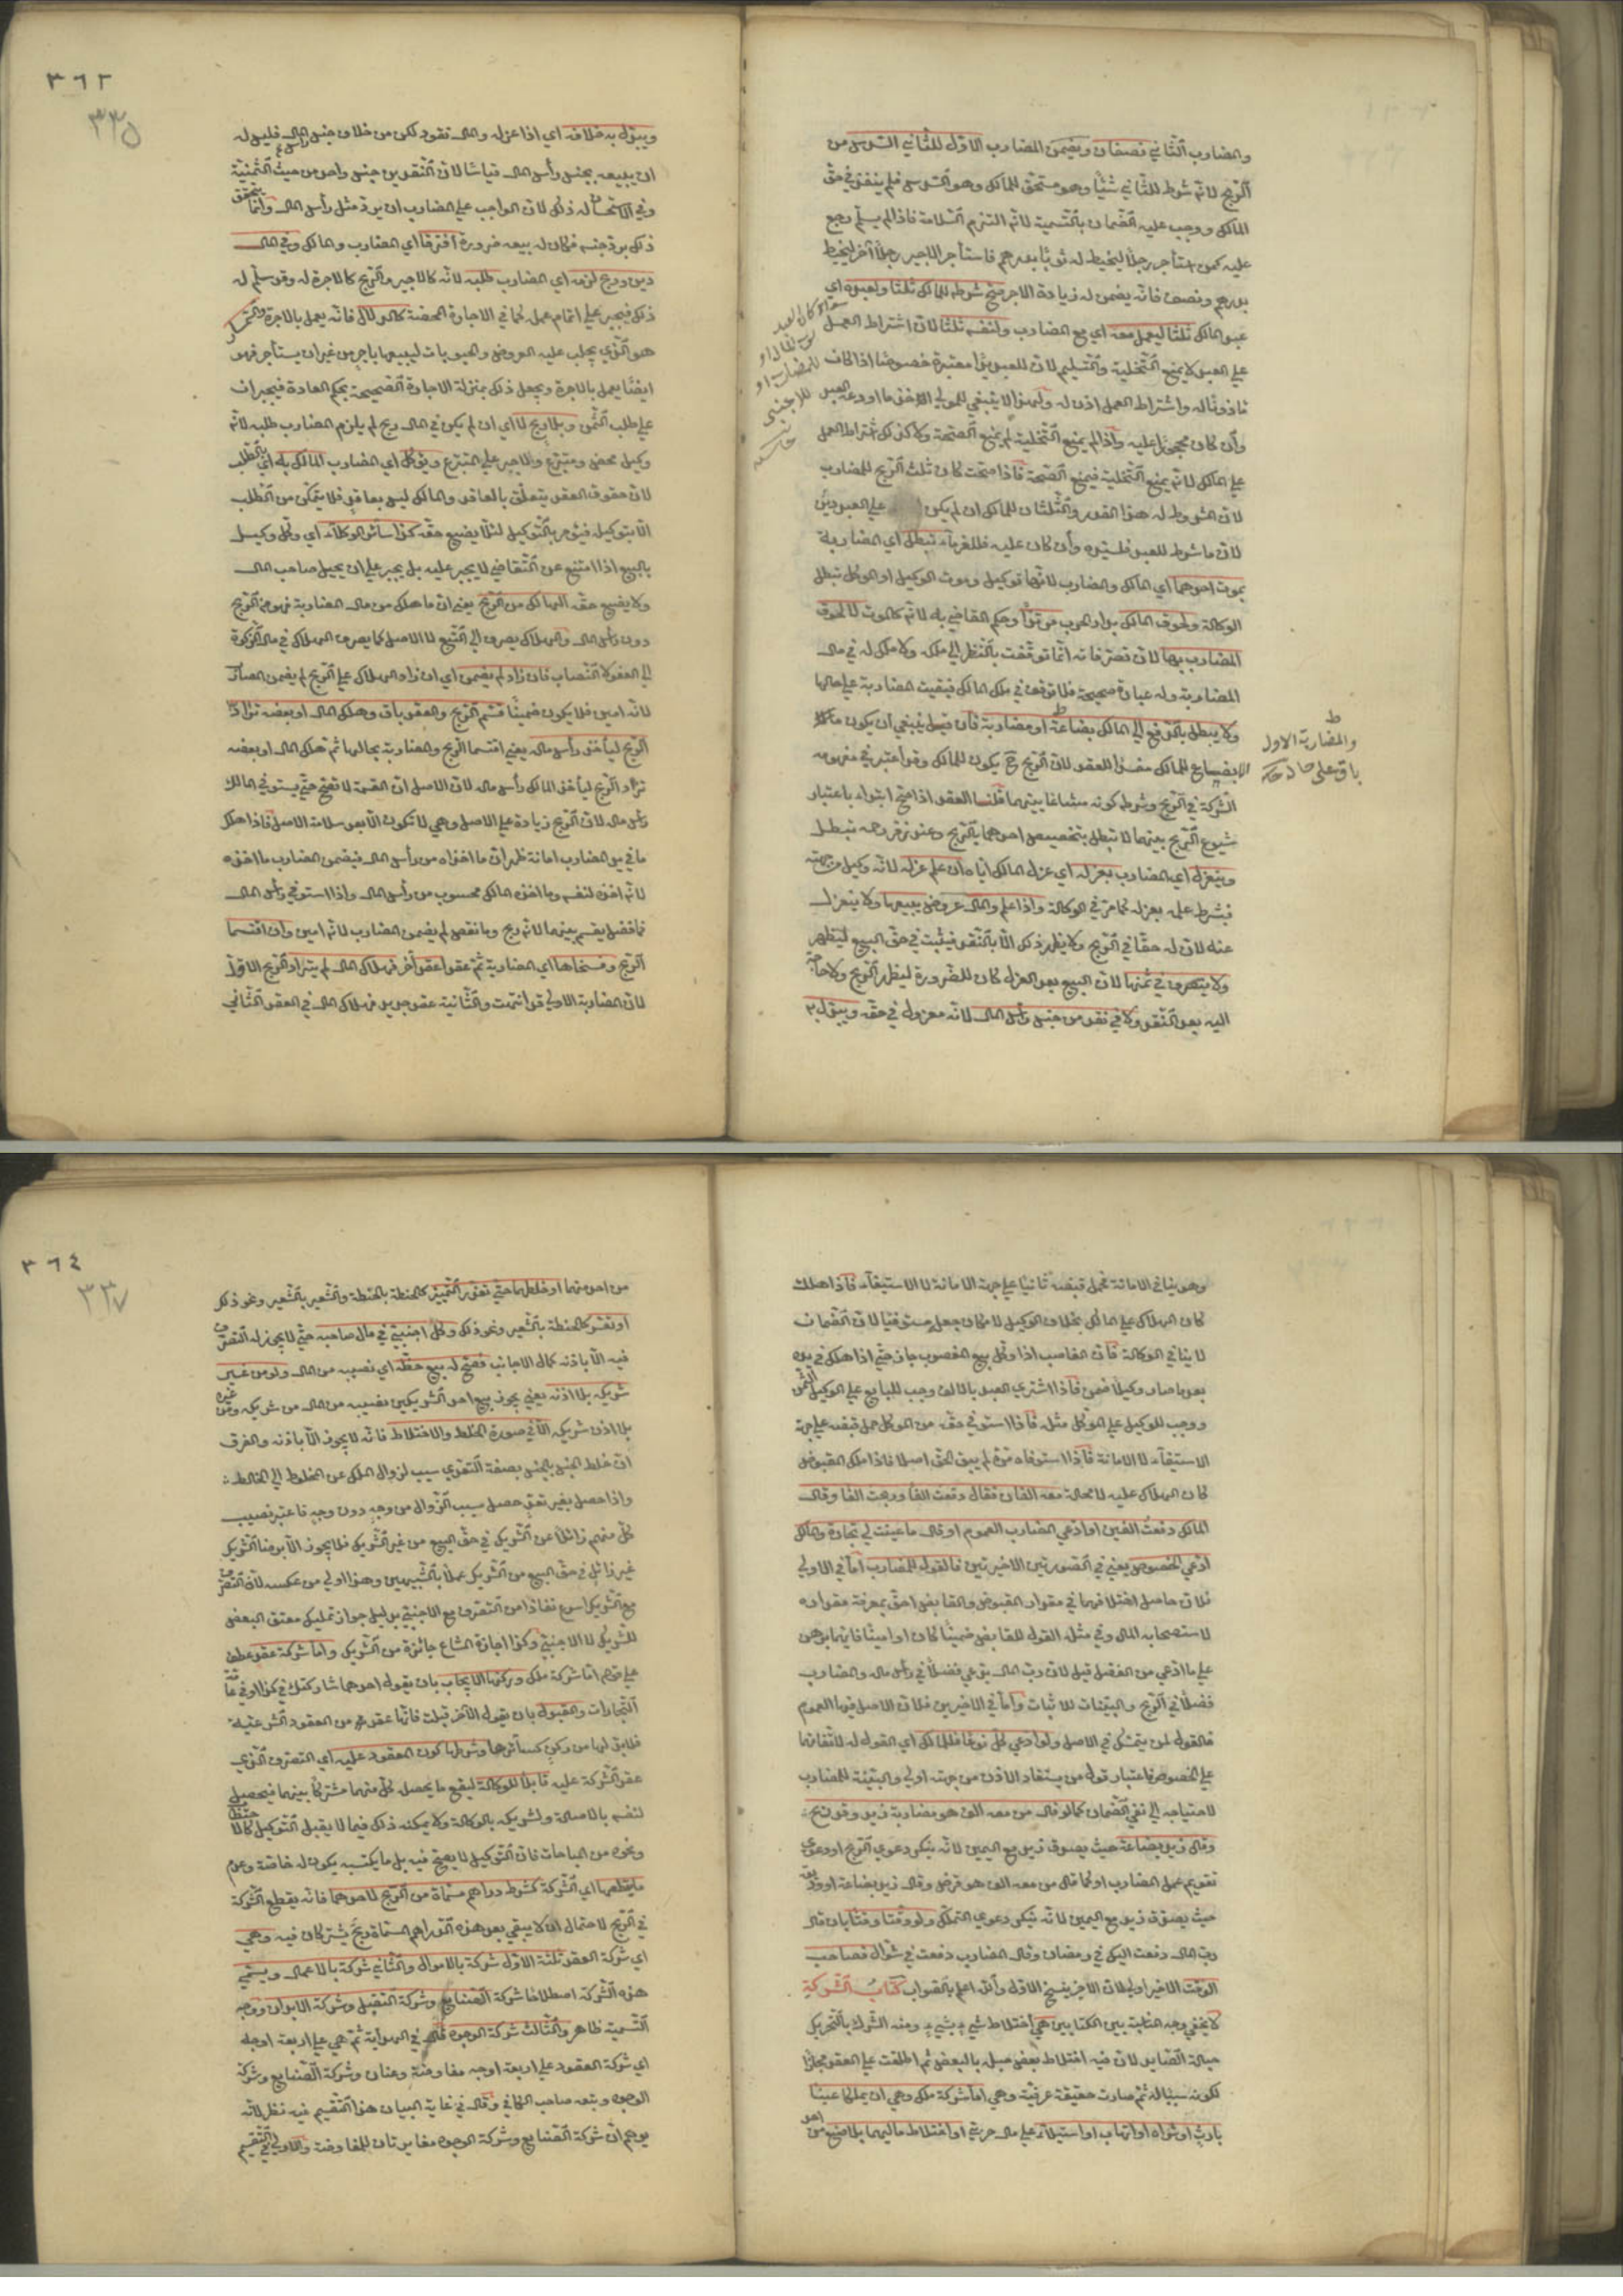 والمضارب الثاني نصفان ويضمن المضارب الاول للثاني السدس من
الربح لانه شرط للثاني شيئا وهو مستحق للمالك وهو السدس فلم ينفذ في حق
المالك ووجب عليه الضمان بالتسمية لانه التزم السلامة فاذا لم يسلم رجع
عليه كمن استأجر رجلا ليخيط له ثوبا بدرهم فاستأجر الاجير رجلا آخر ليخيط
بدرهم ونصف فانه يضمن له زيادة الاجر صح شرطه للمالك ثلثا ولعبده اي
عبد المالك ثلثا ليعمل معه اي مع المضارب ولنفسه ثلثا لان اشتراط العمل
علي العبد لا يمنع التخلية والتسليم لان للعبد يدا معتبرة خصوصا اذا كان
مأذونا له واشتراط العمل اذن له ولهذا لا ينبغي للمولي اخذ ما اودعه العبد
وان كان محجورا عليه واذا لم يمنع التخلية لم يمنع الصحة ولا كذلك اشتراط العمل
علي المالك لانه يمنع التخلية فيمنع الصحة فاذا صحت كان ثلث الربح للمضارب
لان المشروط له هذا القدر والثلثان للمالك ان لم يكن علي العبد دين
لان ما شرط للعبد فلسيده وان كان عليه فللغرماء تبطل اي المضاربة
بموت احدهما اي المالك والمضارب لانها توكيل وموت الوكيل او الموكل تبطل
الوكالة ولحوق المالك بدار الحرب مرتدا وحكم القاضي به لانه كالموت لا لحوق
المضارب بها لان تصرفاته انما توقفت بالنظر الي ملكه ولا ملك له في مال
المضاربة وله عبارة صحيحة فلا توقف في ملك المالك فبقيت المضاربة علي حالها
ولا يبطل بالدفع الي المالك بضاعة او مضاربة فان قيل ينبغي ان يكون
الابضاع للمالك مفسدا للعقد لان الربح ح يكون للمالك وقد اعتبر في مفهومه
الشركة في الربح وشرط كونه مشاعا بينهما قلنا العقد اذا صح ابتداء باعتبار
شيوع الربح بينهما لا تبطل بتخصيص احدهما بالربح وعند زفر رحمه تبطل
وينعزل اي المضارب بعزله اي عزل المالك اياه ان علم عزله لانه وكيل من جهته
فيشرط علمه بعزله كما مر في الوكالة واذا علم والمال عروض يبيعها ولا ينعزل
عنه لان له حقا في الربح ولا يظهر ذلك الا بالنقد فيثبت في حق البيع ليظهر
ولا يتصرف في ثمنها لان البيع بعد العزل كان للضرورة ليظهر الربح ولا حاجة
اليه بعد النقد ولا في نقد من جنس رأس المال لانه معزول في حقه ويبدل به
والمضاربة الاول
باق علي حاله
٣٦٢
٣٣٥
ويبدل به خلافه اي اذا عزله والمال نقود لكن من خلاف جنس رأس المال فليس له
ان يبيعه بجنس رأس المال قياسا لان النقدين جنس واحد من حيث الثمنية
وفي الاستحسان له ذلك لان الواجب علي المضارب ان يرد مثل رأس المال وانما يتحقق
ذلك برد جنسه فكان له بيعه ضرورة افترقا اي المضارب والمالك وفي المال
دين وربح لزمه اي المضارب طلبه لانه كالاجير والربح كالاجرة له وقد سلم له
ذلك فيجبر علي اتمام عمله كما في الاجارة المحضة كالدلال فانه يعمل بالاجرة والسمسار
هو الذي يجلب عليه العروض والحبوبات ليبيعها باجر من غير ان يستأجر فهو
ايضا يعمل بالاجرة ويجعل ذلك بمنزلة الاجارة الصحيحة بحكم العادة فيجبران
علي طلب الثمن وبلا ربح لا اي ان لم يكن في المال ربح لم يلزم المضارب طلبه لانه
وكيل محض ومتبرع ولا جبر علي المتبرع ويوكل اي المضارب المالك به اي بالطلب
لان حقوق العقد يتعلق بالعاقد والمالك ليس بعاقد فلا يتمكن من الطلب
الا بتوكيل فيؤمر بالتوكيل لئلا يضيع حقه كذا سائر الوكلاء اي وكل وكيل
بالبيع اذا امتنع عن التقاضي لا يجبر عليه بل يجبر علي ان يحيل صاحب المال
ولا يضيع حقه الهالك من الربح يعني ان ما هلك من مال المضاربة فهو من الربح
دون رأس المال والهلاك يصرف الي التبع لا الاصل كما يصرف الهلاك في مال الزكوة
الي العفو لا النصاب فان زاد لم يضمن اي ان زاد الهلاك علي الربح لم يضمن المضارب
لانه امين فلا يكون ضمينا قسم الربح والعقد باق وهلك المال او بعضه ترادا
الربح ليأخذ رأس ماله يعني اقتسما الربح والمضاربة بحالها ثم هلك المال او بعضه
تراد الربح ليأخذ المالك رأس ماله لان الاصل ان القسمة لا تصح حتي يستوفي المالك
رأس ماله لان الربح زيادة علي الاصل وهي لا تكون الا بعد سلامة الاصل فاذا هلك
ما في يد المضارب امانة ظهر ان ما اخذاه من رأس المال فيضمن المضارب ما اخذه
لانه اخذه لنفسه وما اخذه المالك محسوب من رأس المال واذا استوفي رأس المال
فما فضل يقسم بينهما لانه ربح وما نقص لم يضمن المضارب لانه امين وان اقتسما
الربح وفسخاها اي المضاربة ثم عقدا عقدا آخر فهلاك المال لم يترادا الربح الاول
لان المضاربة الاولي قد انتهت والثانية عقد جديد فهلاك المال في العقد الثاني
وهو ينافي الامانة فجعل قبضه ثانيا علي جهة الامانة لا الاستيفاء فاذا هلك
كان الهلاك علي المالك بخلاف الوكيل لامكان جعله مستوفيا لان الضمان
لا ينافي الوكالة فان الغاصب اذا وكل ببيع المغصوب جاز حتي اذا هلك في يده
بعد ما صار وكيلا ضمن فاذا اشتري العبد بالالف وجب للبايع علي الوكيل الثمن
ووجب للوكيل علي الموكل مثله فاذا استوفي حقه من الموكل حمل قبضه علي جهة
الاستيفاء لا الامانة فاذا استوفاه مرة لم يبق الحق اصلا فاذا هلك المقبوض
كان الهلاك عليه لا محالة معه الفان فقال دفعت الفا وربحت الفا وقال
المالك دفعت الفين او ادعي المضارب العموم او قال ما عينت لي تجارة والمالك
ادعي الخصوص يعني في الصورتين الاخيرتين فالقول للمضارب اما في الاولي
فلان حاصل اختلافهما في مقدار المقبوض والقابض احق بمعرفة مقداره
لاستصحابه المال وفي مثله القول للقابض ضمينا كان او امينا فايهما برهن
علي ما ادعي من الفضل قبل لان رب المال يدعي فضلا في رأس ماله والمضارب
فضلا في الربح والبينات للاثبات واما في الاخيرين فلان الاصل فيها العموم
فالقول لمن يتمسك في الاصل ولو ادعي كل نوعا فللمالك اي القول له لاتفاقهما
علي الخصوص فاعتبار قول من يستفاد الاذن من جهته اولي والبينة للمضارب
لاحتياجه الي نفي الضمان كما لو قال من معه الف هو مضاربة زيد وقد ربح
وقال زيد بضاعة حيث يصدق زيد مع اليمين لانه ينكر دعوي الربح او دعوي
تقويم عمل المضارب او كما قال من معه الف هو قرض وقال زيد بضاعة او وديعة
حيث يصدق زيد مع اليمين لانه ينكر دعوي التملك ولو وقتا وقتا بان قال
رب المال دفعت اليك في رمضان وقال المضارب دفعت في شوال فصاحب
الوقت الاخير اولي لان الاخر ينسخ الاول والله اعلم بالصواب كتاب الشركة
لا يخفي وجه المناسبة بين الكتابين هي اختلاط شيء بشيء ومنه الشرك بالتحريك
حبالة الصايد لان فيه اختلاط بعض حبله بالبعض ثم اطلقت علي العقد مجازا
لكونه سببا له ثم صارت حقيقة عرفية وهي اما شركة ملك وهي ان يملكا عينا
بارث او شراء او اتهاب او استيلاء علي مال حربي او اختلاط ماليهما بلا صنع من احد
٣٦٤
٣٣٧
من احدهما او خلطهما حتي تعذر التمييز كالحنطة بالحنطة والشعير بالشعير ونحو ذلك
او تعسر كالحنطة بالشعير ونحو ذلك وكل اجنبي في مال صاحبه حتي لا يجوز له التصرف
فيه الا باذنه كمال الاجانب فصح له بيع حظه اي نصيبه من المال ولو من غير
شريكه بلا اذنه يعني يجوز بيع احد الشريكين نصيبه من المال من شريكه ومن غيره
بلا اذن شريكه الا في صورة الخلط والاختلاط فانه لا يجوز الا باذنه والفرق
ان خلط الجنس بالجنس بصفة التعدي سبب لزوال الملك عن المخلوط الي الخالط
واذا حصل بغير تعد حصل سبب الزوال من وجه دون وجه فاعتبر نصيب
كل منهم زائلا عن الشريك في حق البيع من غير الشريك فلا يجوز الا برضا الشريك
غير زائل في حق البيع من الشريك عملا بالشبهين وهذا اولي من عكسه لان التصرف
مع الشريك اسرع نفاذا من التصرف مع الاجنبي بدليل جواز تمليك معتق البعض
للشريك لا الاجنبي وكذا اجارة المشاع جائزة من الشريك واما شركة عقد عطف
علي قوله اما شركة ملك وركنها الايجاب بان يقول احدهما شاركتك في كذا او في عامة
التجارات والقبول بان يقول الآخر قبلت فانها عقد من العقود الشرعية
فلا بد لها من ركن كسائرها وشرطها كون المعقود عليه اي التصرف الذي
عقد الشركة عليه قابلا للوكالة ليقع ما يحصله كل منهما مشتركا بينهما فيحصل
لنفسه بالاصالة ولشريكه بالوكالة ولا يمكنه ذلك فيما لا يقبل التوكيل كالاحتطاب
ونحوه من المباحات فان التوكيل لا يصح فيه بل ما يكتسبه يكون له خاصة وعدم
ما يقطعها اي الشركة كشرط دراهم مسماة من الربح لاحدهما فانه يقطع الشركة
في الربح لاحتمال ان لا يبقي بعد هذه الدراهم المسماة ربح يشتركان فيه وهي
اي شركة العقد ثلثة الاول شركة بالاموال والثاني شركة بالاعمال ويسمي
هذه الشركة اصطلاحا شركة الصنايع وشركة التقبل وشركة الابدان ووجه
التسمية ظاهر والثالث شركة الوجوه قال في الهداية ثم هي علي اربعة اوجه
اي شركة العقود علي اربعة اوجه مفاوضة وعنان وشركة الصنايع وشركة
الوجوه وتبعه صاحب الكافي وقال في غاية البيان هذا التقسيم فيه نظر لانه
يوهم ان شركة الصنايع وشركة الوجوه مغايرتان للمفاوضة والاولي في التقسيم